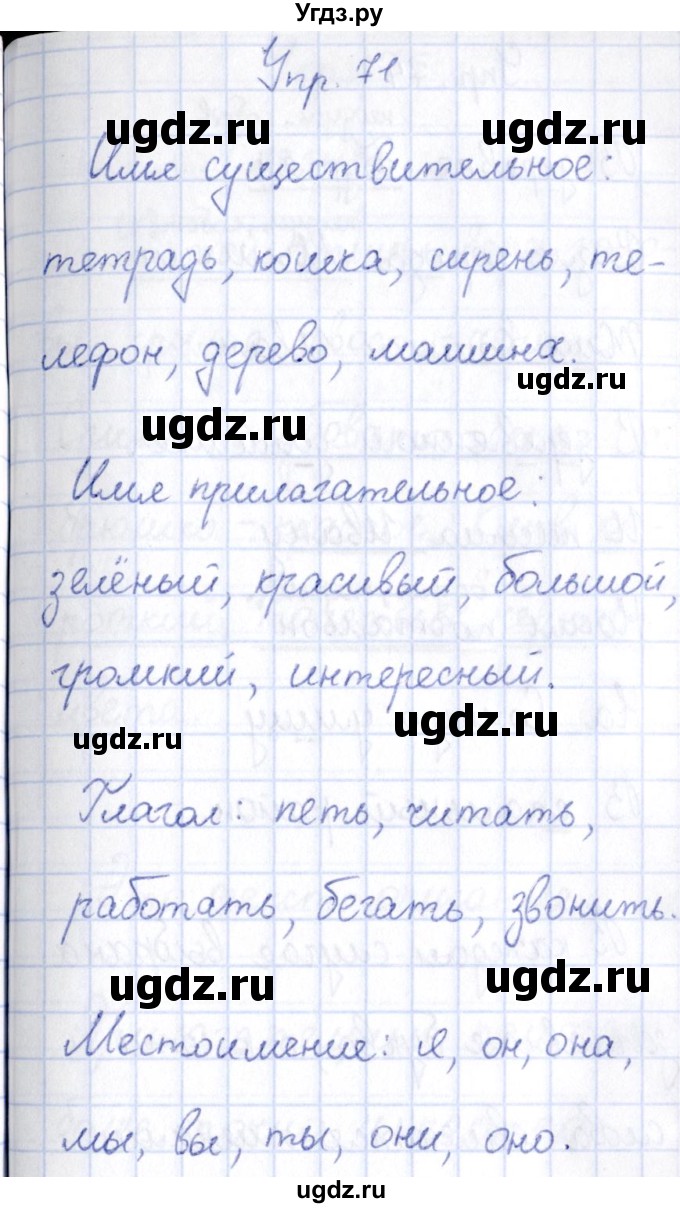 Угдз.ру
Упр. 71
ugdz.ru ugdz.ru
Имя существительное:
тетрадь, кошка, сирень, те-
лефон, дерево, машина.
ugdz.ru
ugdz.ru
Имя прилагательное:
зелёный, красивый, большой,
громкий, интересный.
ugdz.ru
ugdz.ru
Глагол: петь, читать,
работать, бегать, звонить.
ugdz.ru ugdz.ru
Местоимение: я, он, она,
мы, вы, ты, они, оно.
ugdz.ru